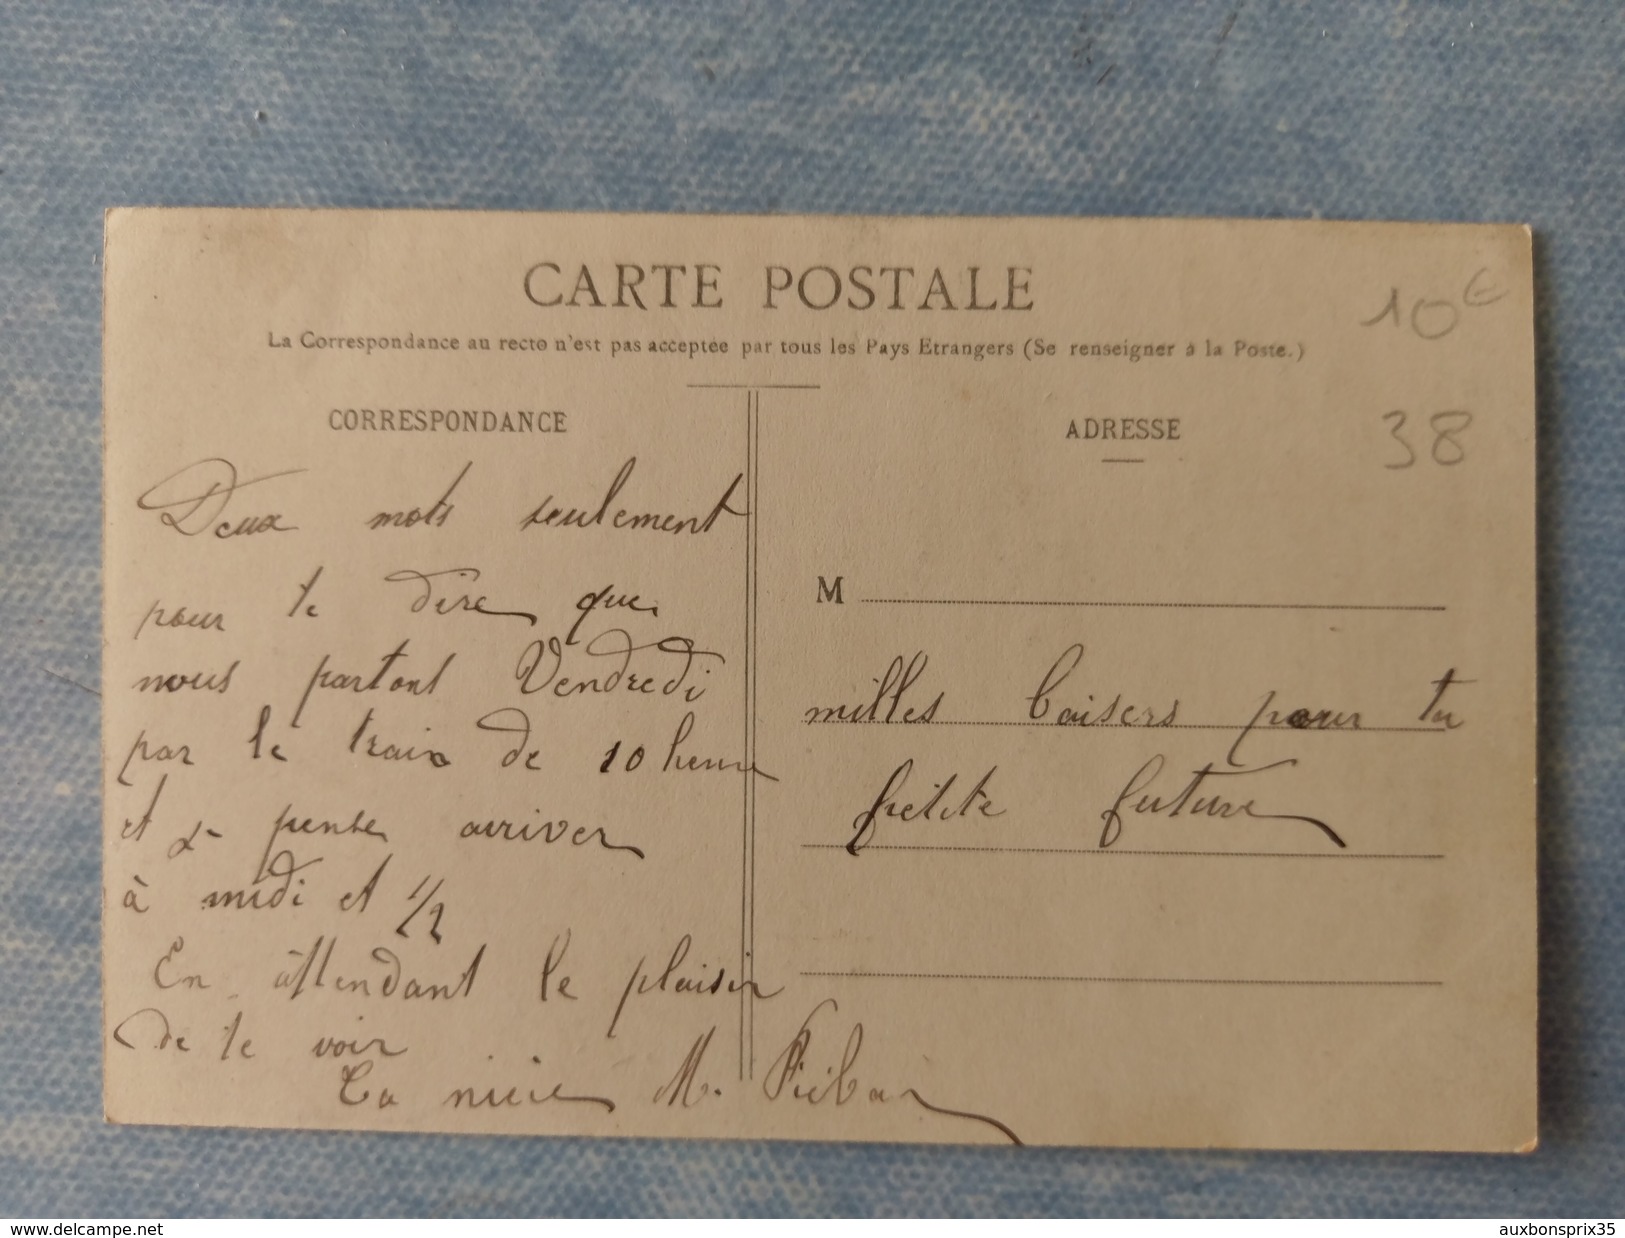 CARTE POSTALE
La Correspondance au recto n'est pas acceptée par tous les Pays Etrangers (Se renseigner à la Poste.)
10€
CORRESPONDANCE
Deux mots seulement
pour te dire que
nous partons Vendredi
par le train de 10 heure
et pense arriver
à midi et 1/2
En attendant le plaisir
de te voir
Ta niece M.
ADRESSE
38
M
milles baisers pour ta
petite future
www.delcampe.net
auxbonsprix35